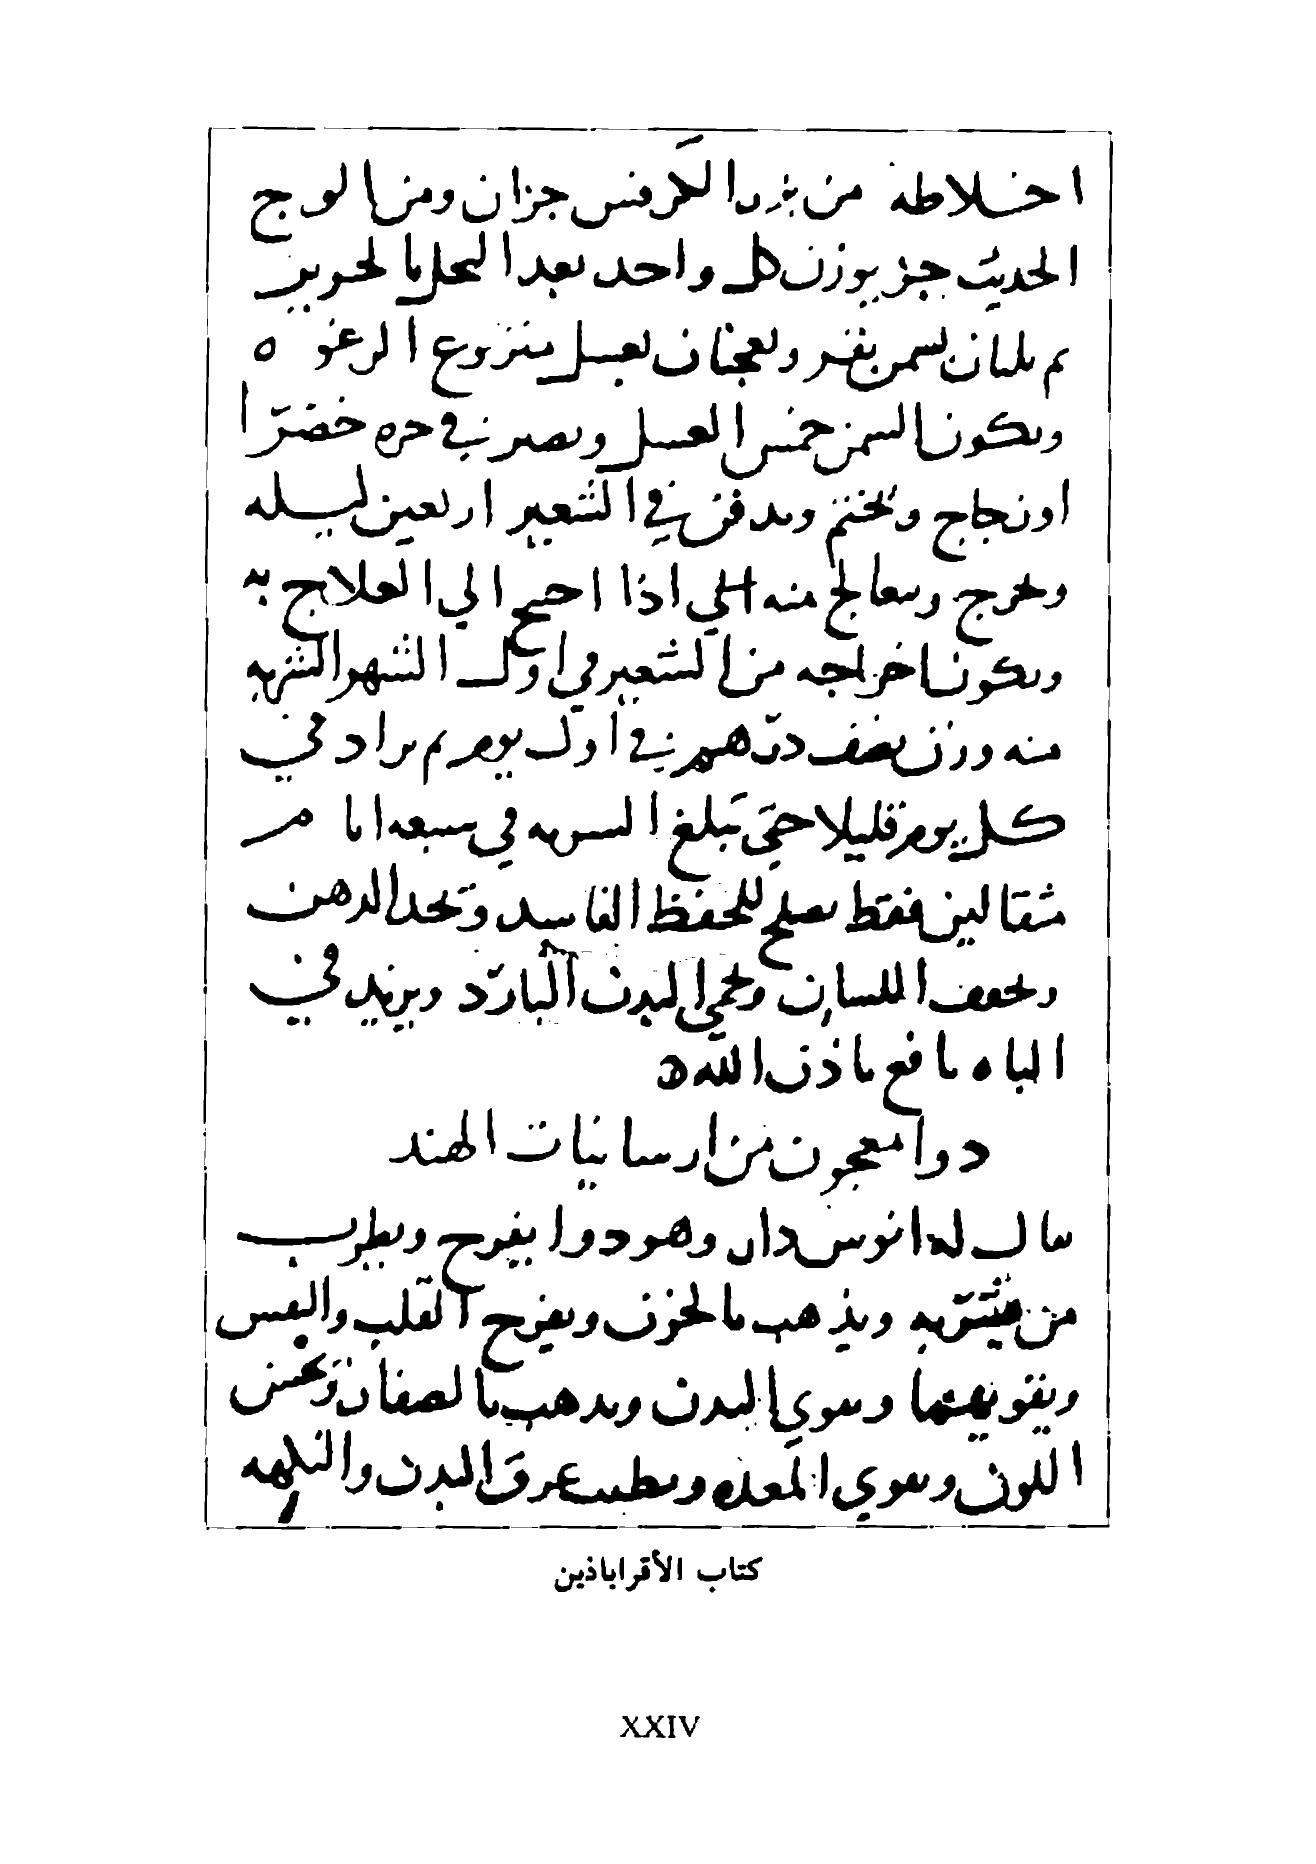 اخلاطه من بزر الكرفس جزان ومن الوج
الحديث جز بوزن كل واحد بعد النخل بالحرير
ثم يلتان بسمن بقر ويعجنان بعسل منزوع الرغوه
ويكون السمن خمس العسل ويصير في جره خضرا
او زجاج ويختم ويدفن في الشعير اربعين ليله
ويخرج ويتعالج منه اذا احتيج الي العلاج به
ويكون اخراجه من الشعير في اول الشهر الشربه
منه وزن نصف درهم في اول يوم ثم يزاد في
كل يوم قليلا حتي تبلغ الشربه في سبعه ايام
مثقالين فقط يصلح للحفظ الفاسد ويحد الذهن
ويخفف اللسان ويحمي البدن البارد ويزيد في
الباه نافع باذن الله
دوا معجون من ارسانيات الهند
يقال له انوس دارو وهو دوا يفرح ويطرب
من شربه ويذهب بالحزن ويفرح القلب والنفس
ويقويهما ويقوي البدن ويذهب بالصفار ويحسن
اللون ويقوي المعده ويطيب عرق البدن والنكهه
كتاب الأقراباذين
XXIV